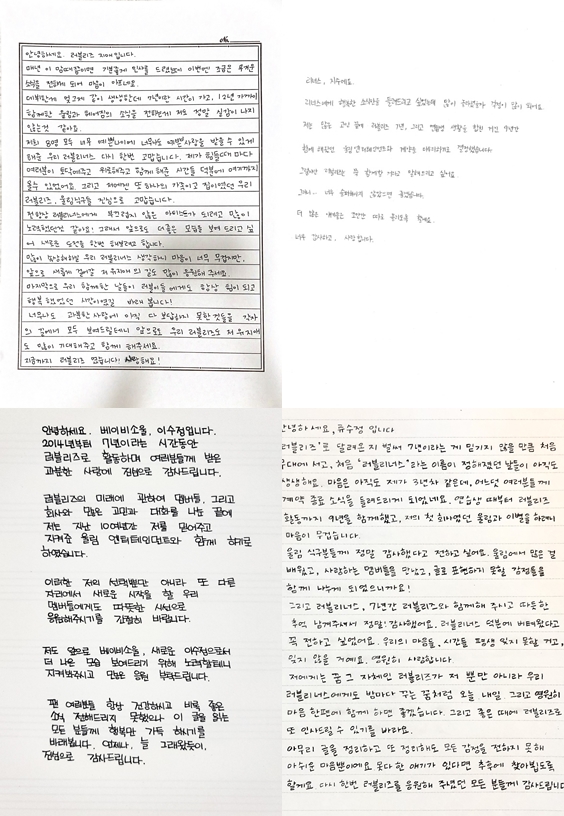 안녕하세요. 러블리즈 지애입니다.
매년 이 맘때쯤이면 기분좋게 인사를 드렸는데 이번엔 조금은 무거운
소식을 전하게 되어 마음이 아프네요.
데뷔한게 엊그제 같이 생생한데 7년이란 시간이 가고, 12년 가까이
함께한 울림과 헤어짐의 소식을 전하려니 저도 정말 실감이 나지
않는것 같아요.
저희 음악 모두 너무 예뻐해주시고 사랑을 받을 수 있게
해준 우리 러블리너스 다시 한번 고맙습니다. 제가 힘들때 마다
여러분이 토닥여주고 위로해주고 함께 해준 시간들 덕분에 여기까지
올수 있었어요. 그리고 저에겐 또 하나의 가족이고 집이였던 우리
러블리즈, 울림식구들 진심으로 고맙습니다.
전 항상 러블리너스에게 부끄럽지 않은 아이돌이 되려고 많이
노력했던것 같아요! 그래서 앞으로도 더 좋은 모습을 보여 드리고 싶
어 새로운 도전을 한번 해보려고 합니다.
많이 놀랐을 우리 러블리너스 생각하니 마음이 너무 무겁지만,
앞으로 새롭게 걸어갈 저 유지애의 길도 많이 응원해 주세요.
마지막으로 우리 함께한 날들이 러블이들에게도 항상 힘이되고
행복했었던 시간이였길 바래 봅니다!
너무나도 과분한 사랑에 아직 다 보답하지 못한것들을 각자
의 길에서 모두 보여드릴테니 앞으로도 우리 러블리즈도 저 유지애
도 많이 기대해주고 함께 해주세요.
지금까지 러블리즈 였습니다! 사랑해요!
러너스, 지수예요.
너무 감사하고, 사랑합니다.
안녕하세요. 베이비소울, 이수정입니다.
2014년부터 7년이라는 시간동안
러블리즈로 활동하며 여러분들께 받은
과분한 사랑에 진심으로 감사드립니다.
러블리즈의 미래에 관하여 멤버들, 그리고
회사와 많은 고민과 대화를 나눈 끝에
저는 지난 10여년간 저를 믿어주고
지켜준 울림 엔터테인먼트와 함께 하기로
하였습니다.
이러한 저의 선택뿐만 아니라 또 다른
자리에서 새로운 시작을 할 우리
멤버들에게도 따뜻한 시선으로
응원해주시기를 간절히 바랍니다.
저도 앞으로 베이비소울, 새로운 이수정으로서
더 나은 모습 보여드리기 위해 노력할테니
지켜봐주시고 많은 응원 부탁드립니다.
팬 여러분들 항상 건강하시고 비록 좋은
소식 전해드리지 못했으나 이 글을 읽는
모든 분들께 행복만 가득 하시기를
바래봅니다. 언제나, 늘 그래왔듯이,
진심으로 감사드립니다.
안녕하세요, 류수정 입니다
러블리즈'로 달려온 지 벌써 7년이라는 게 믿기지 않을 만큼 처음
무대에 서고, 처음 '러블리너스'라는 이름이 정해졌던 날들이 아직도
생생해요. 마음은 아직도 제가 3년차 같은데, 어느덧 여러분들께
계약 종료 소식을 들려드리게 되었네요. 연습생 때부터 러블리즈
활동까지 9년을 함께했고, 나의 첫 회사였던 울림과 이별을 하려니
마음이 무겁습니다.
울림 식구분들께 정말 감사했다고 전하고 싶어요. 울림에서 많은 걸
배웠고, 사랑하는 멤버들을 만났고, 글로 표현하지 못할 감정들을
함께 나누게 되었으니까요!
그리고 러블리너스, 7년간 러블리즈와 함께해 주시고 따듯한
추억 남겨주셔서 정말! 감사했어요. 러블리너스 덕분에 버텨왔다고
꼭 전하고 싶었어요. 우리의 마음들, 시간들 평생 잊지 못할 거고,
잊지 않을 거예요. 영원히 사랑합니다.
저에게는 꿈 그 자체인 러블리즈가 저 뿐만 아니라 우리
러블리너스에게도 밤마다 꾸는 꿈처럼 오늘 내일. 그리고 영원히
마음 한편에 함께 하면 좋겠습니다. 그리고 좋은 때에 러블리즈로
또 인사드릴 수 있기를 바라요.
아무리 글을 정리하고 또 정리해도 모든 감정을 전하지 못해
아쉬운 마음뿐이에요. 못다한 얘기가 있다면 추후에 찾아뵙도록
할게요. 다시 한번 러블리즈를 응원해 주셨던 모든 분들께 감사드립니다